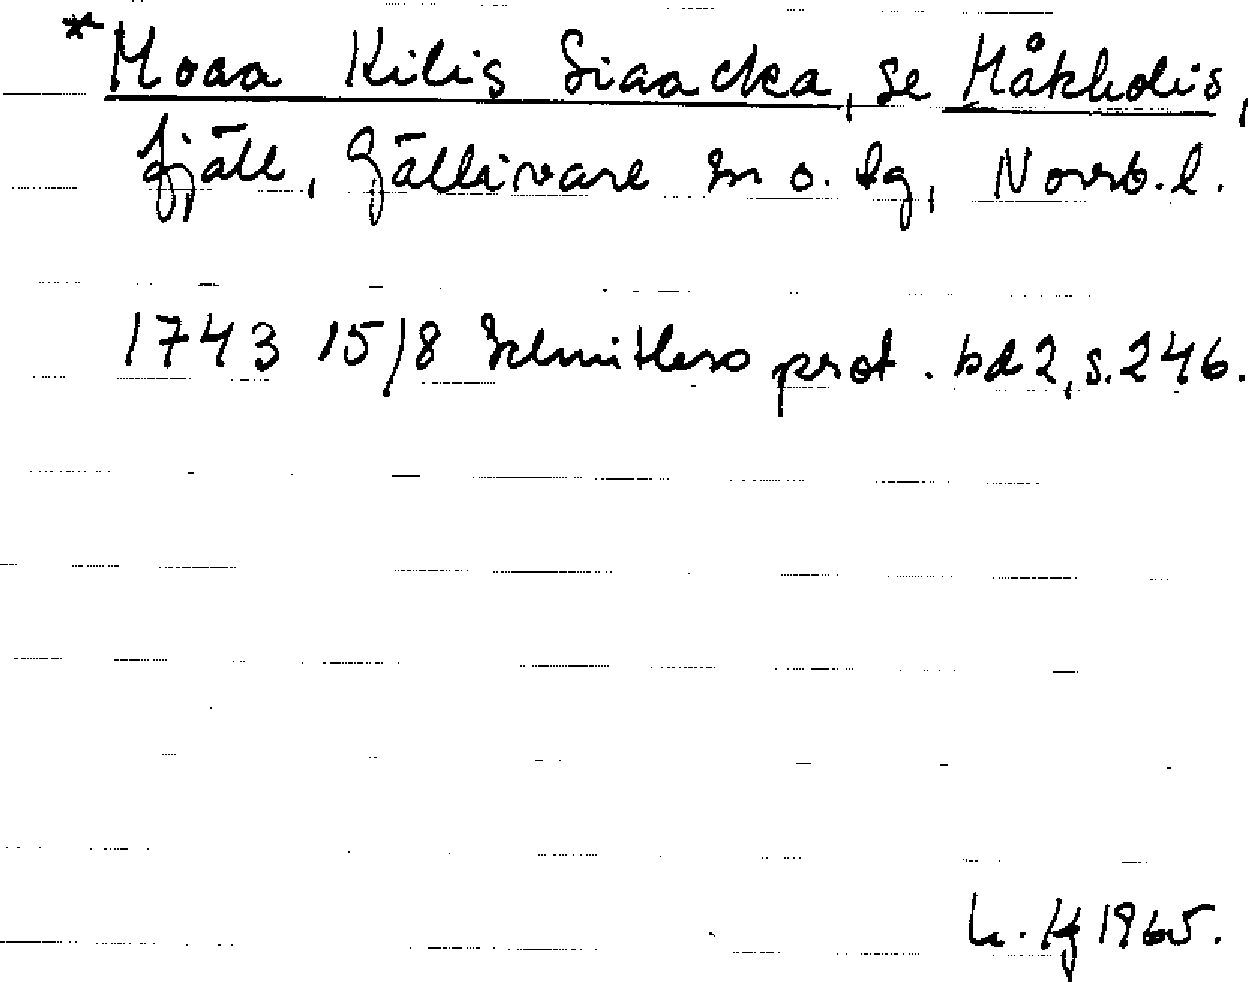 *Moaa Kilis Siaacka, se Måkkolis,
fjäll, Gällivare sn o. tg, Norrb. l.
1743 15/8 Schnitlers prot. bd 2, s. 246.
1965.